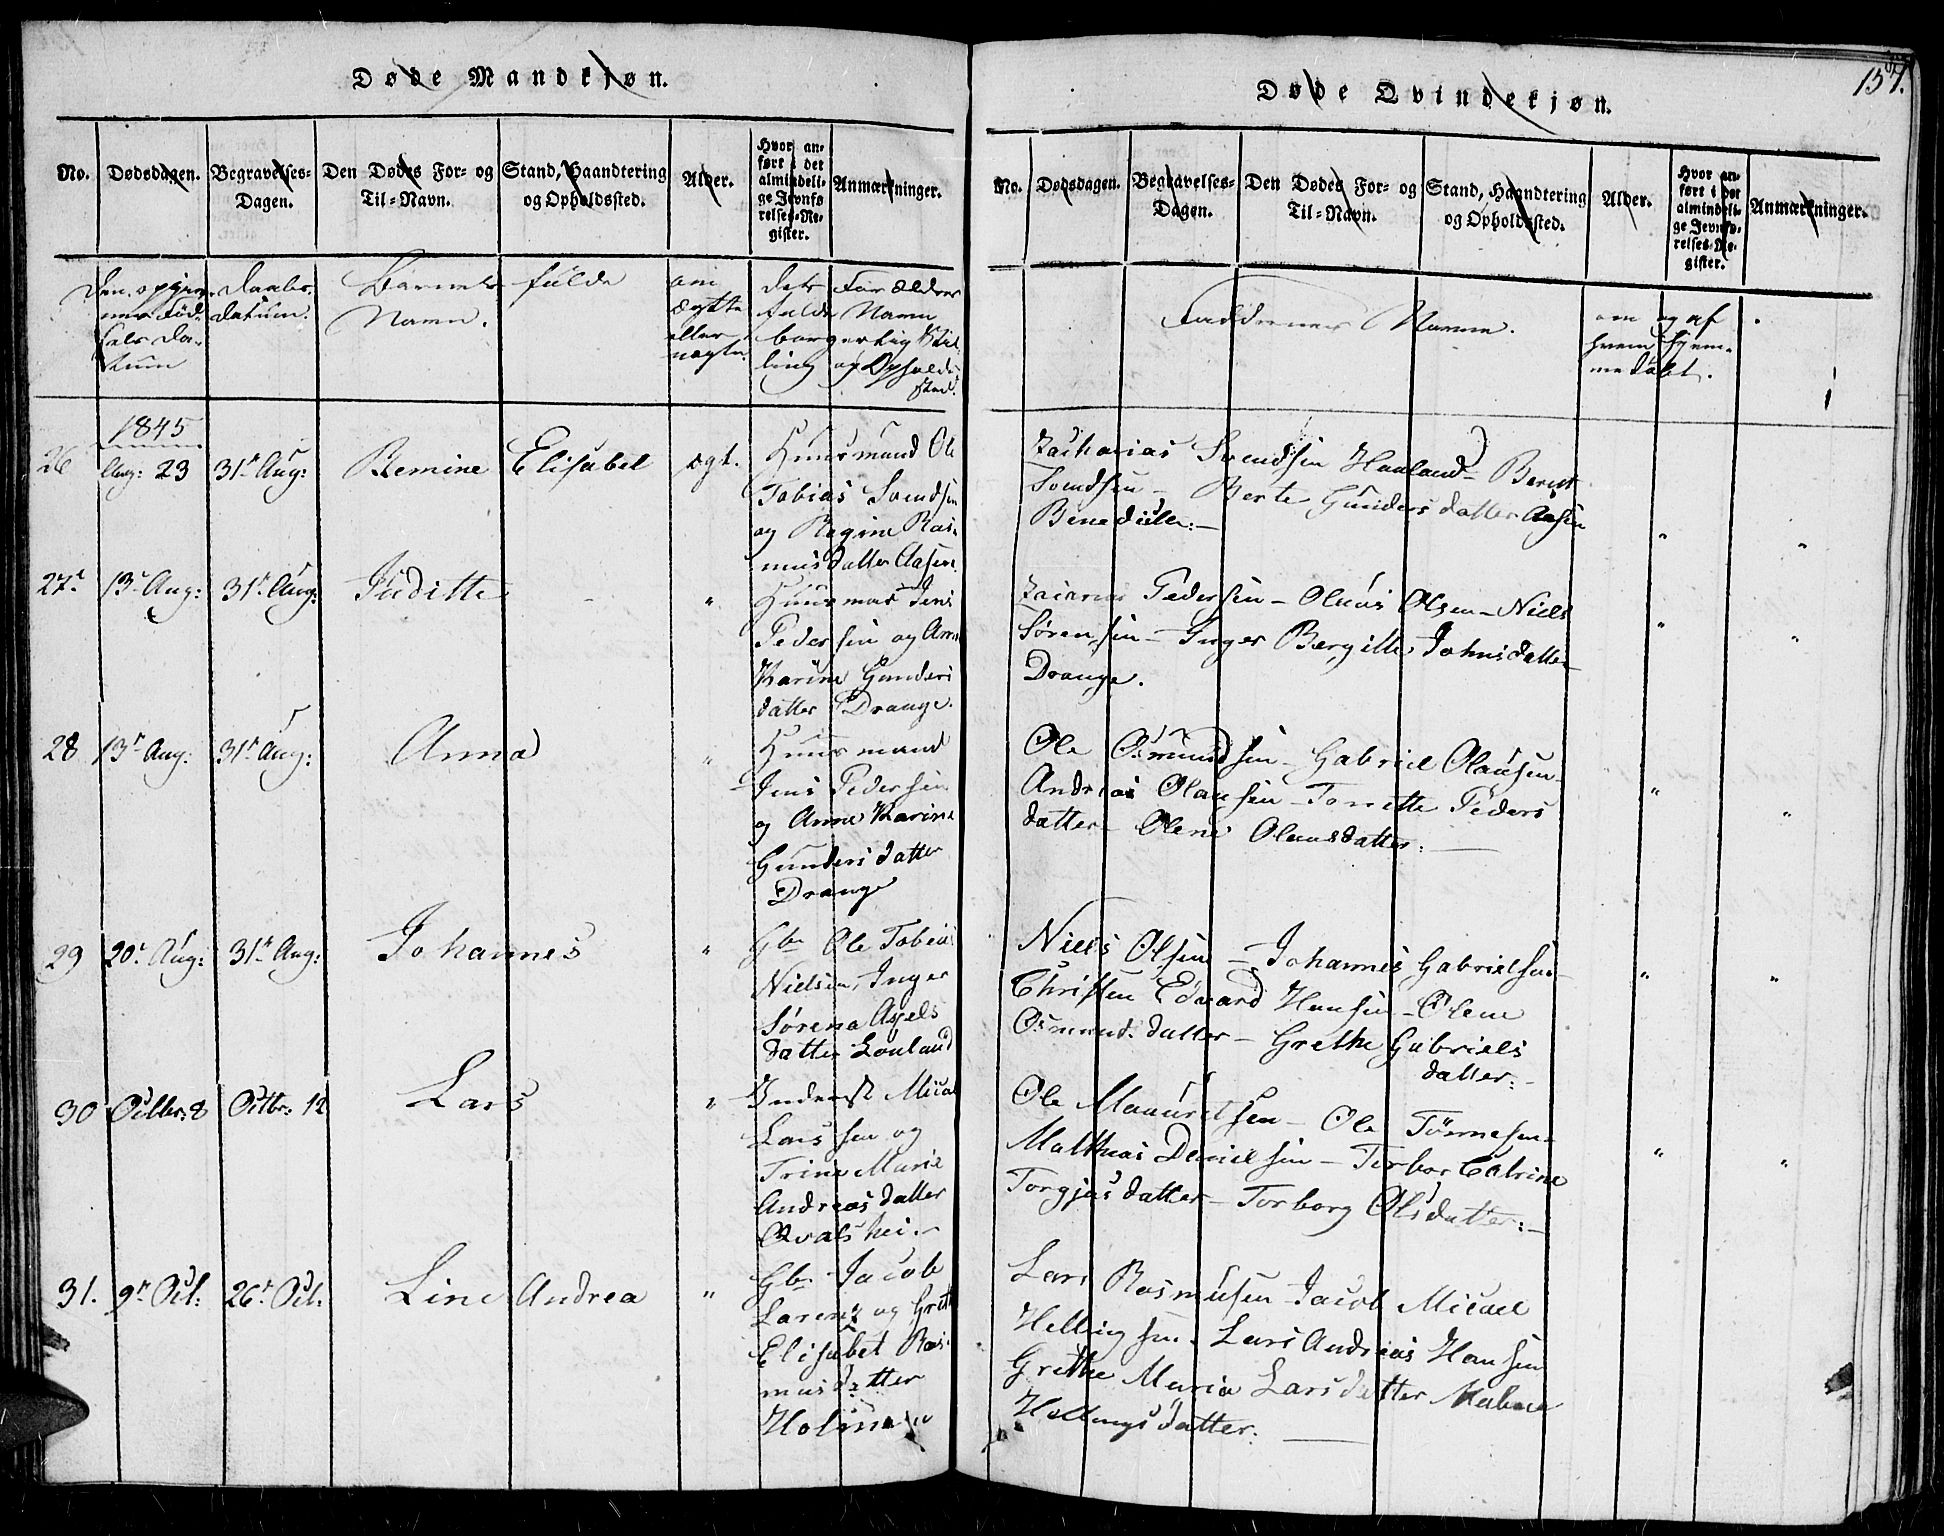 Døde Mandkjøn.
No.
Dødsdagen.
Begravelses-
Dagen.
Den Dødes For- og
Til-Navn.
Stand, Haandtering
og Opholdssted.
Alder.
Hvor an-
ført i det
almindeli-
ge Jevnfø
relses-Re-
gister.
Anmærkninger.
Døbe
Datum.
Barnets fulde
Navn.
om
ægte
eller
uægte.
dets Forældres
fulde Navn
borgerlig Stil-
ling og Opholds-
sted.
1845
26
Aug: 23
31te Aug:
Bemine Elisabet
ægt.
Huusmand Ole
Tobias Svendsen
og Regine Ras-
musdatter Aasen.
27
13 Aug:
31te Aug:
Juditte
"
Jens
Pedersen og Anne
Karine Gunders
datter Drange.
28
13 Aug:
31te Aug:
Anna
"
Huusmand
Jens Pedersen
og Anne Karine
Gundersdatter
Drange
29
20 Aug:
31te Aug:
Johannes
"
Gbr Ole Tobias
Nielsen, Inger
Sørena Axels
datter Louland
30
Octbr: 8
Octbr: 12
Lars
"
Inderst Micael
Larssen og
Trine Marie
Andreasdatter
Qvalshei.
31.
9n Oct:
26n Oct:
Line Andrea
"
Gbr Jacob
Larens og Grethe
Elisabet Ras-
musdatter
Døde Qvindekjøn.
137.
No.
Dødsdagen.
Begravelses-
Dagen.
Den Dødes For- og
Til-Navn.
Stand, Haandtering
og Opholdssted.
Alder.
Hvor an-
ført i det
almindeli-
ge Jevnfø-
relses-Re-
gister.
Anmærkninger.
Faddernes Navne.
om og af
hvem hjem-
me døbt.
Zacharias Svendsen Haaland - Berent
Svendsen - Berte Gundersdatter Aasen
"
"
Pedersen - Olaus Olsen - Niels
Sørensen - Inger Bergitte Johnsdatter
Drange.
"
"
Ole Osmundsen - Gabriel Olausen
Andreas Olausen - Tonette Peders
datter - Olene Olausdatter:
"
"
Niels Olsen - Johannes Gabrielsen
Christen Edvard Hansen - Olene
Osmundsdatter - Grethe Gabriels
datter:
"
"
Ole Mauritsen - Ole Tønnesen
Matthias Danielsen - Torbor Catrine
Torgjusdatter - Torborg Olsdatter:
"
"
Lars Rasmusen Jacob Micael
Hellingsen - Lars Andreas Hansen
Grethe Maria Larsdatter
Hellingsdatter.